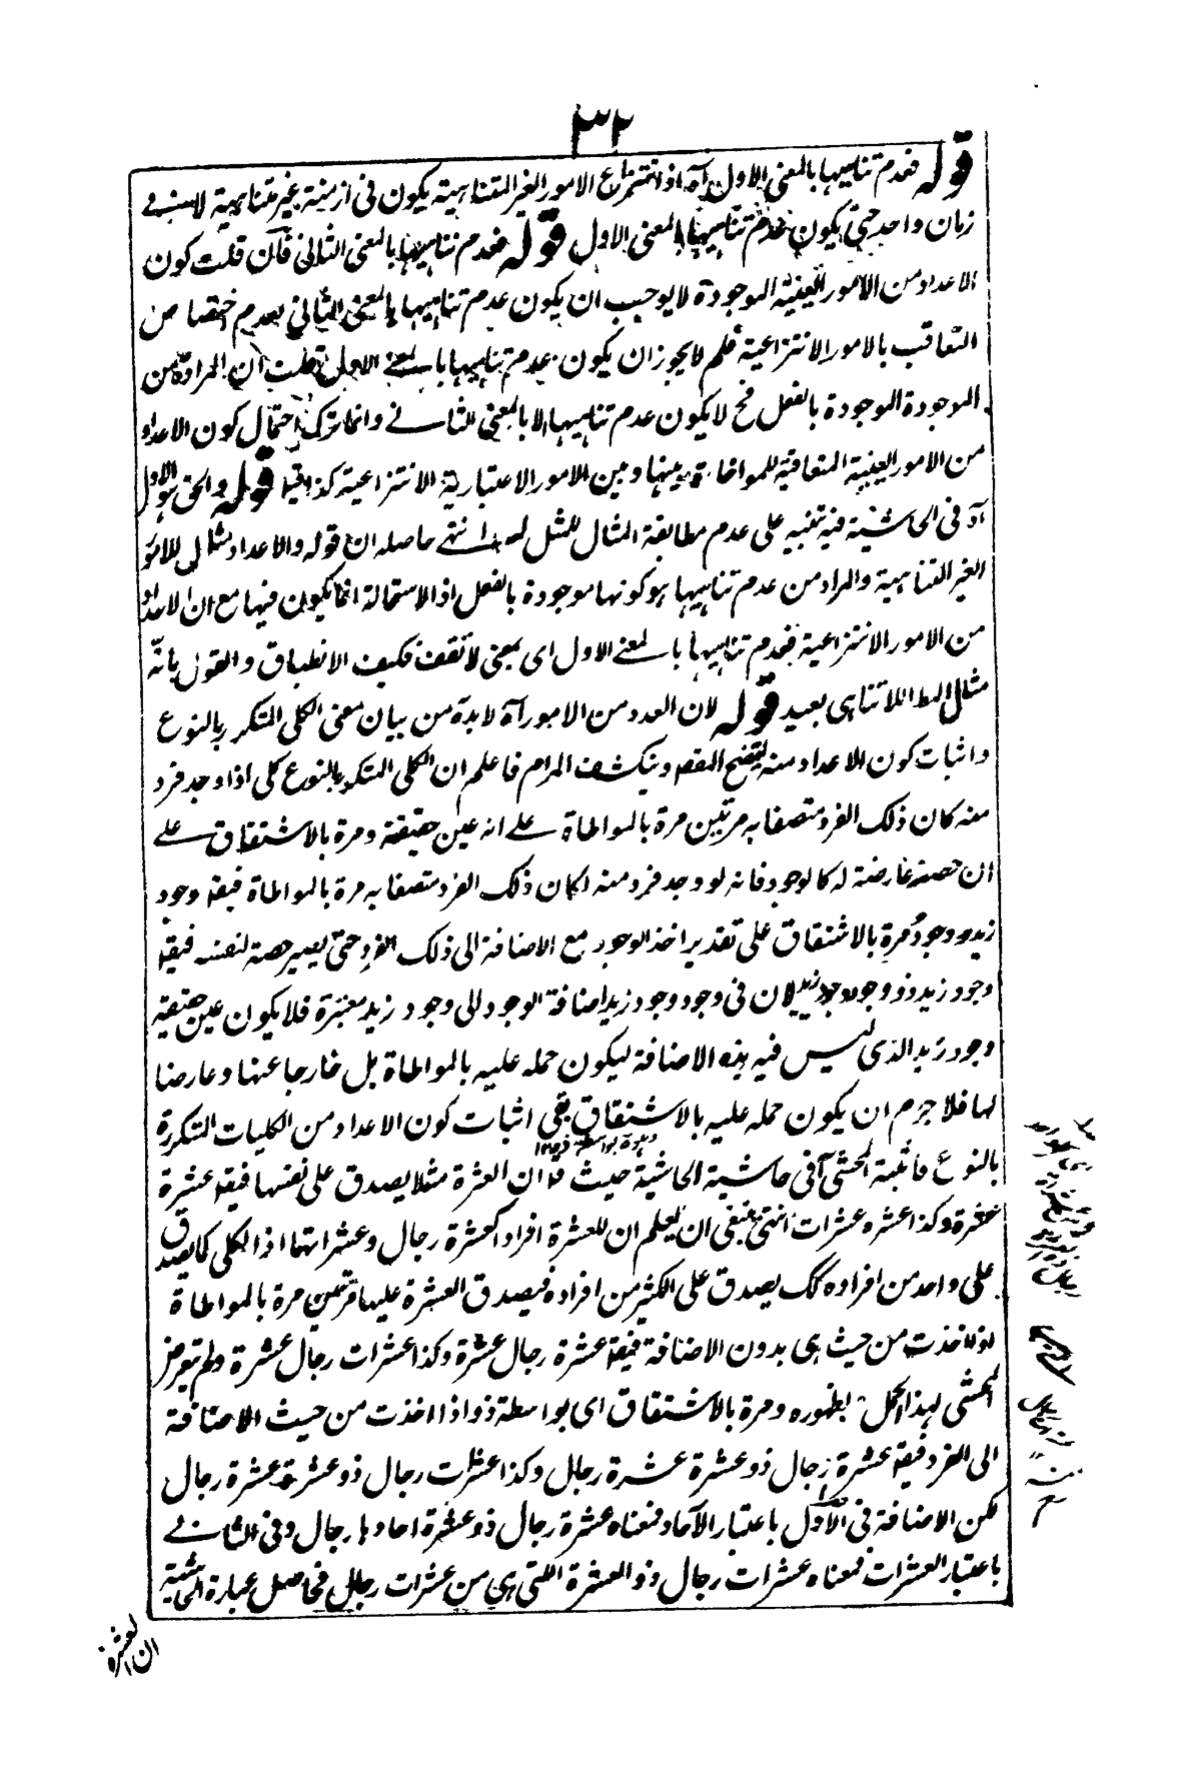 ٣٢
قوله فعدم تناهيها بالمعنى الاول آه اذ انتزاع الامور الغير المتناهية يكون فى ازمنة غير متناهية لا فى
زمان واحد حتى يكون عدم تناهيها بالمعنى الاول قوله فعدم تناهيها بالمعنى الثانى فآن قلت كون
الاعداد من الامور العينية الموجودة لا يوجب ان يكون عدم تناهيها بالمعنى الثانى بعدم اختصاص
التعاقب بالامور الانتزاعية فلم لا يجوز ان يكون عدم تناهيها بالمعنى الاول قلت ان المراد من
الموجودة الموجودة بالفعل فح لا يكون عدم تناهيها الا بالمعنى الثانى وانما ترك احتمال كون الاعداد
من الامور العينية المتعاقبة للمواخاة بينها وبين الامور الاعتبارية الانتزاعية كذا قيل قوله والحق هو الاول
آه فى الحاشية فيه تنبيه على عدم مطابقة المثال للمثل له انتهى حاصله ان قوله والاعداد مثال للامور
الغير المتناهية والمراد من عدم تناهيها هو كونها موجودة بالفعل اذ الاستحالة انما يكون فيها مع ان الاعداد
من الامور الانتزاعية فعدم تناهيها بالمعنى الاول اى بمعنى لا تقف فكيف الانطباق والقول بانه
مثال لمط اللاتناهى بعيد قوله لان العدد من الامور آه لا بد من بيان معنى الكلى المتكرر بالنوع
واثبات كون الاعداد منه ليتضح المقصد وينكشف المرام فاعلم ان الكلى المتكرر بالنوع كلى اذا وجد فرد
منه كان ذلك الفرد متصفا به مرتين مرة بالمواطاة على انه عين حقيقة ومرة بالاشتقاق على
ان حصته عارضة له كالوجود فانه لو وجد فرد منه لكان ذلك الفرد متصفا به مرة بالمواطاة فيقه وجود
زيد وجود ومرة بالاشتقاق على تقدير اخذ الوجود مع الاضافة الى ذلك الفرد حتى يصير حصة لنفسه فيقه
وجود زيد ذو وجود وجود زيد لان فى وجود وجود زيد اضافة الوجود الى وجود زيد معتبرة فلا يكون عين حقيقة
وجود زيد الذى ليس فيه هذه الاضافة ليكون حمله عليه بالمواطاة بل خارجا عنها وعارضا
لها فلا جرم ان يكون حمله عليه بالاشتقاق بقى اثبات كون الاعداد من الكليات المتكررة
بالنوع فاثبته المحشى فى حاشية الحاشية حيث قال ان العشرة مثلا يصدق على نفسها فيقه عشرة
عشرة وكذا عشرة عشرات انتهى ينبغى ان يعلم ان للعشرة افراد كعشرة رجال وعشراتها اذ الكلى كما يصدق
على واحد من افراده كك يصدق على الكثير من افراده فيصدق العشرة عليها مرتين مرة بالمواطاة
لو اخذت من حيث هى بدون الاضافة فيقه عشرة رجال عشرة وكذا عشرات رجال عشرة ولم يتعرض
المحشى لهذا الحمل لظهوره ومرة بالاشتقاق اى بواسطة ذو اذا اخذت من حيث الاضافة
الى الفرد فيقه عشرة رجال ذو عشرة عشرة رجال وكذا عشرات رجال ذو عشرة عشرة رجال
لكن الاضافة فى الاول باعتبار الآحاد فمعناه عشرة رجال ذو عشرة احادها رجال وفى الثانى
باعتبار العشرات فمعناه عشرات رجال ذو العشرة التى هى من عشرات رجال فحاصل عبارة الحاشية
ان العشرة